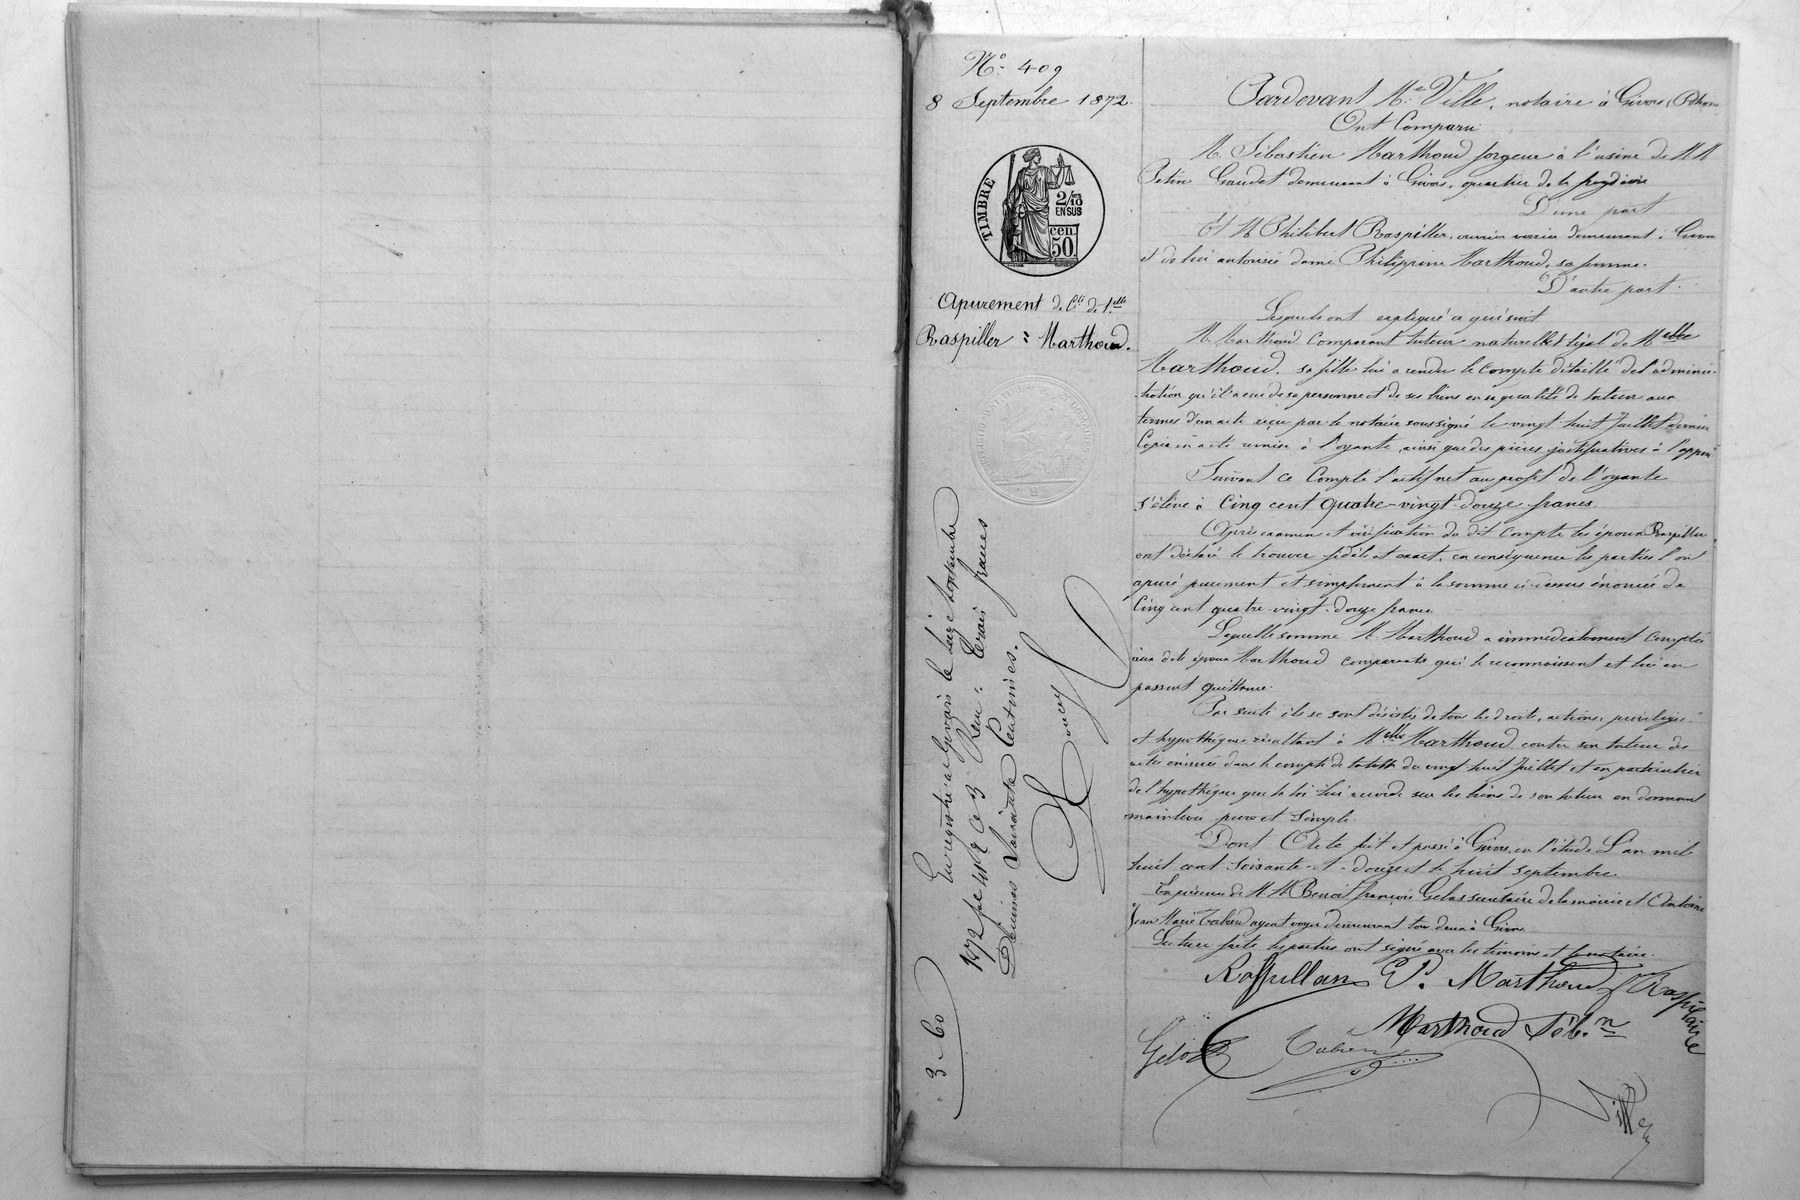 N° 409
8 Septembre 1872.
TIMBRE
2/10
EN SUS
cen.
50
Apurement de Cte de tlle
Raspiller = Marthoud.
Enregistré à Givors le seize septembre
1872 fe 48 Ce 3 Reçu: trois francs
Décimes soixante centimes.
3.60
Pardevant Me Ville, notaire à Givors, Rhône
Ont Comparu
M. Sébastien Marthoud forgeur à l'usine de MM
Petin Gaudet demeurant à Givors, quartier de la
D'une part
Et M Philibert Raspiller, ouvrier verrier demeurant à Givors
et de lui autorisée dame Philippine Marthoud, sa femme.
D'autre part.
Lesquels ont expliqué ce qui suit
M. Marthoud comparant tuteur naturel et légal de Melle
Marthoud, sa fille lui a rendu le compte détaillé de l'adminis-
tration qu'il a eue de sa personne et de ses biens en sa qualité de tuteur aux
termes d'un acte reçu par le notaire soussigné le vingt huit Juillet dernier
Copie en a été remise à l'oyante, ainsi que des pièces justificatives à l'appui
Suivant ce Compte l'actif net au profit de l'oyante
s'élève à Cinq cent quatre-vingt-douze francs
Après examen et vérification du dit Compte les époux Raspiller
ont déclaré le trouver fidèle et exact, en conséquence les parties l'ont
apuré purement et simplement à la somme ci-dessus énoncée de
Cinq cent quatre-vingt-douze francs
Laquelle somme M. Marthoud a immédiatement comptée
aux dits époux Marthoud comparants qui le reconnaissent et lui en
passent quittance.
Par suite ils se sont désistés de tous les droits, actions, privilèges
et hypothèques résultant à Melle Marthoud contre son tuteur des
actes énoncés dans le compte de tutelle du vingt-huit Juillet et en particulier
de l'hypothèque que la loi lui accorde sur les biens de son tuteur en donnant
mainlevée pure et simple.
Dont Acte fait et passé à Givors, en l'étude L'an mil
huit cent soixante-et-douze et le huit septembre
En présence de MM Benoit François Gelas secrétaire de la mairie et Antoine
Jean Marie agent voyer demeurant tous deux à Givors
Lecture faite les parties ont signé avec les témoins et le notaire.
P. Marthoud f Raspillaire
Marthoud Séb.n
Gelas
Ville